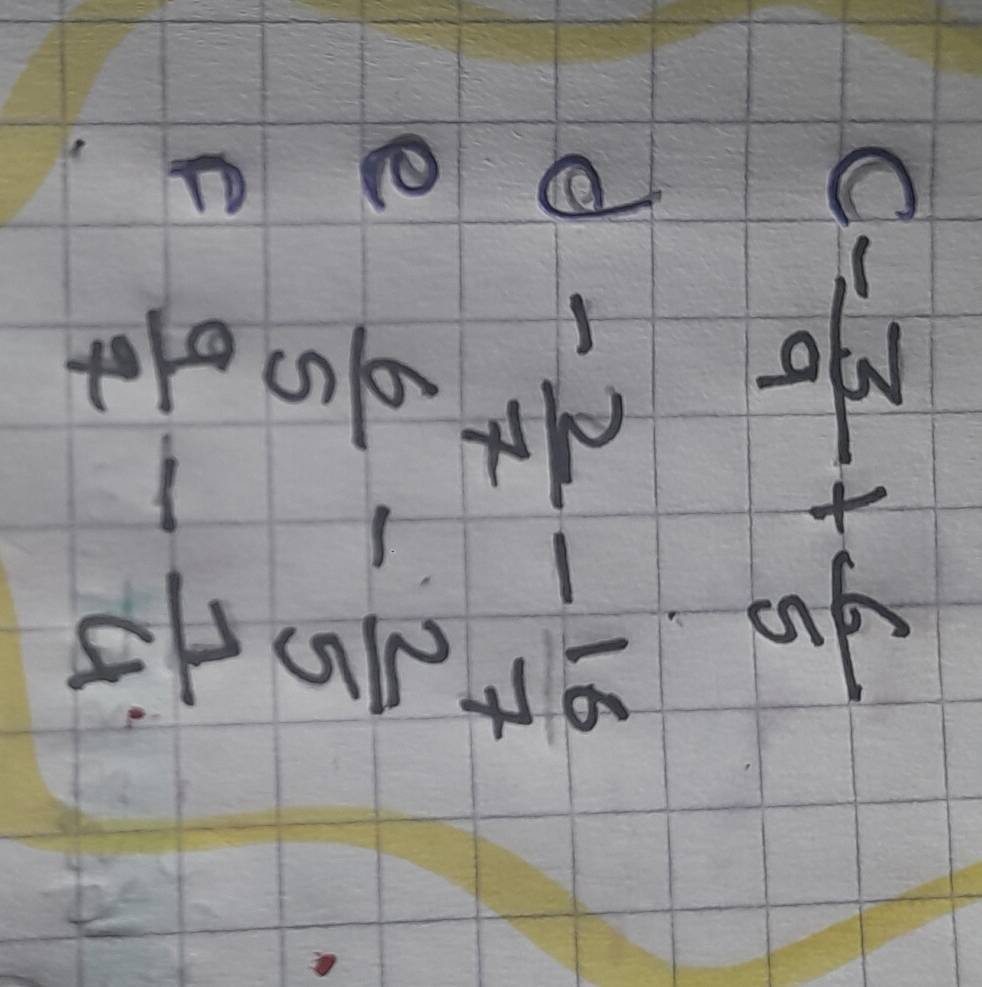 C -3/9 + 6/5
d -2/7 - 16/7
e 6/5 - 2/5
F 9/7 - 7/4